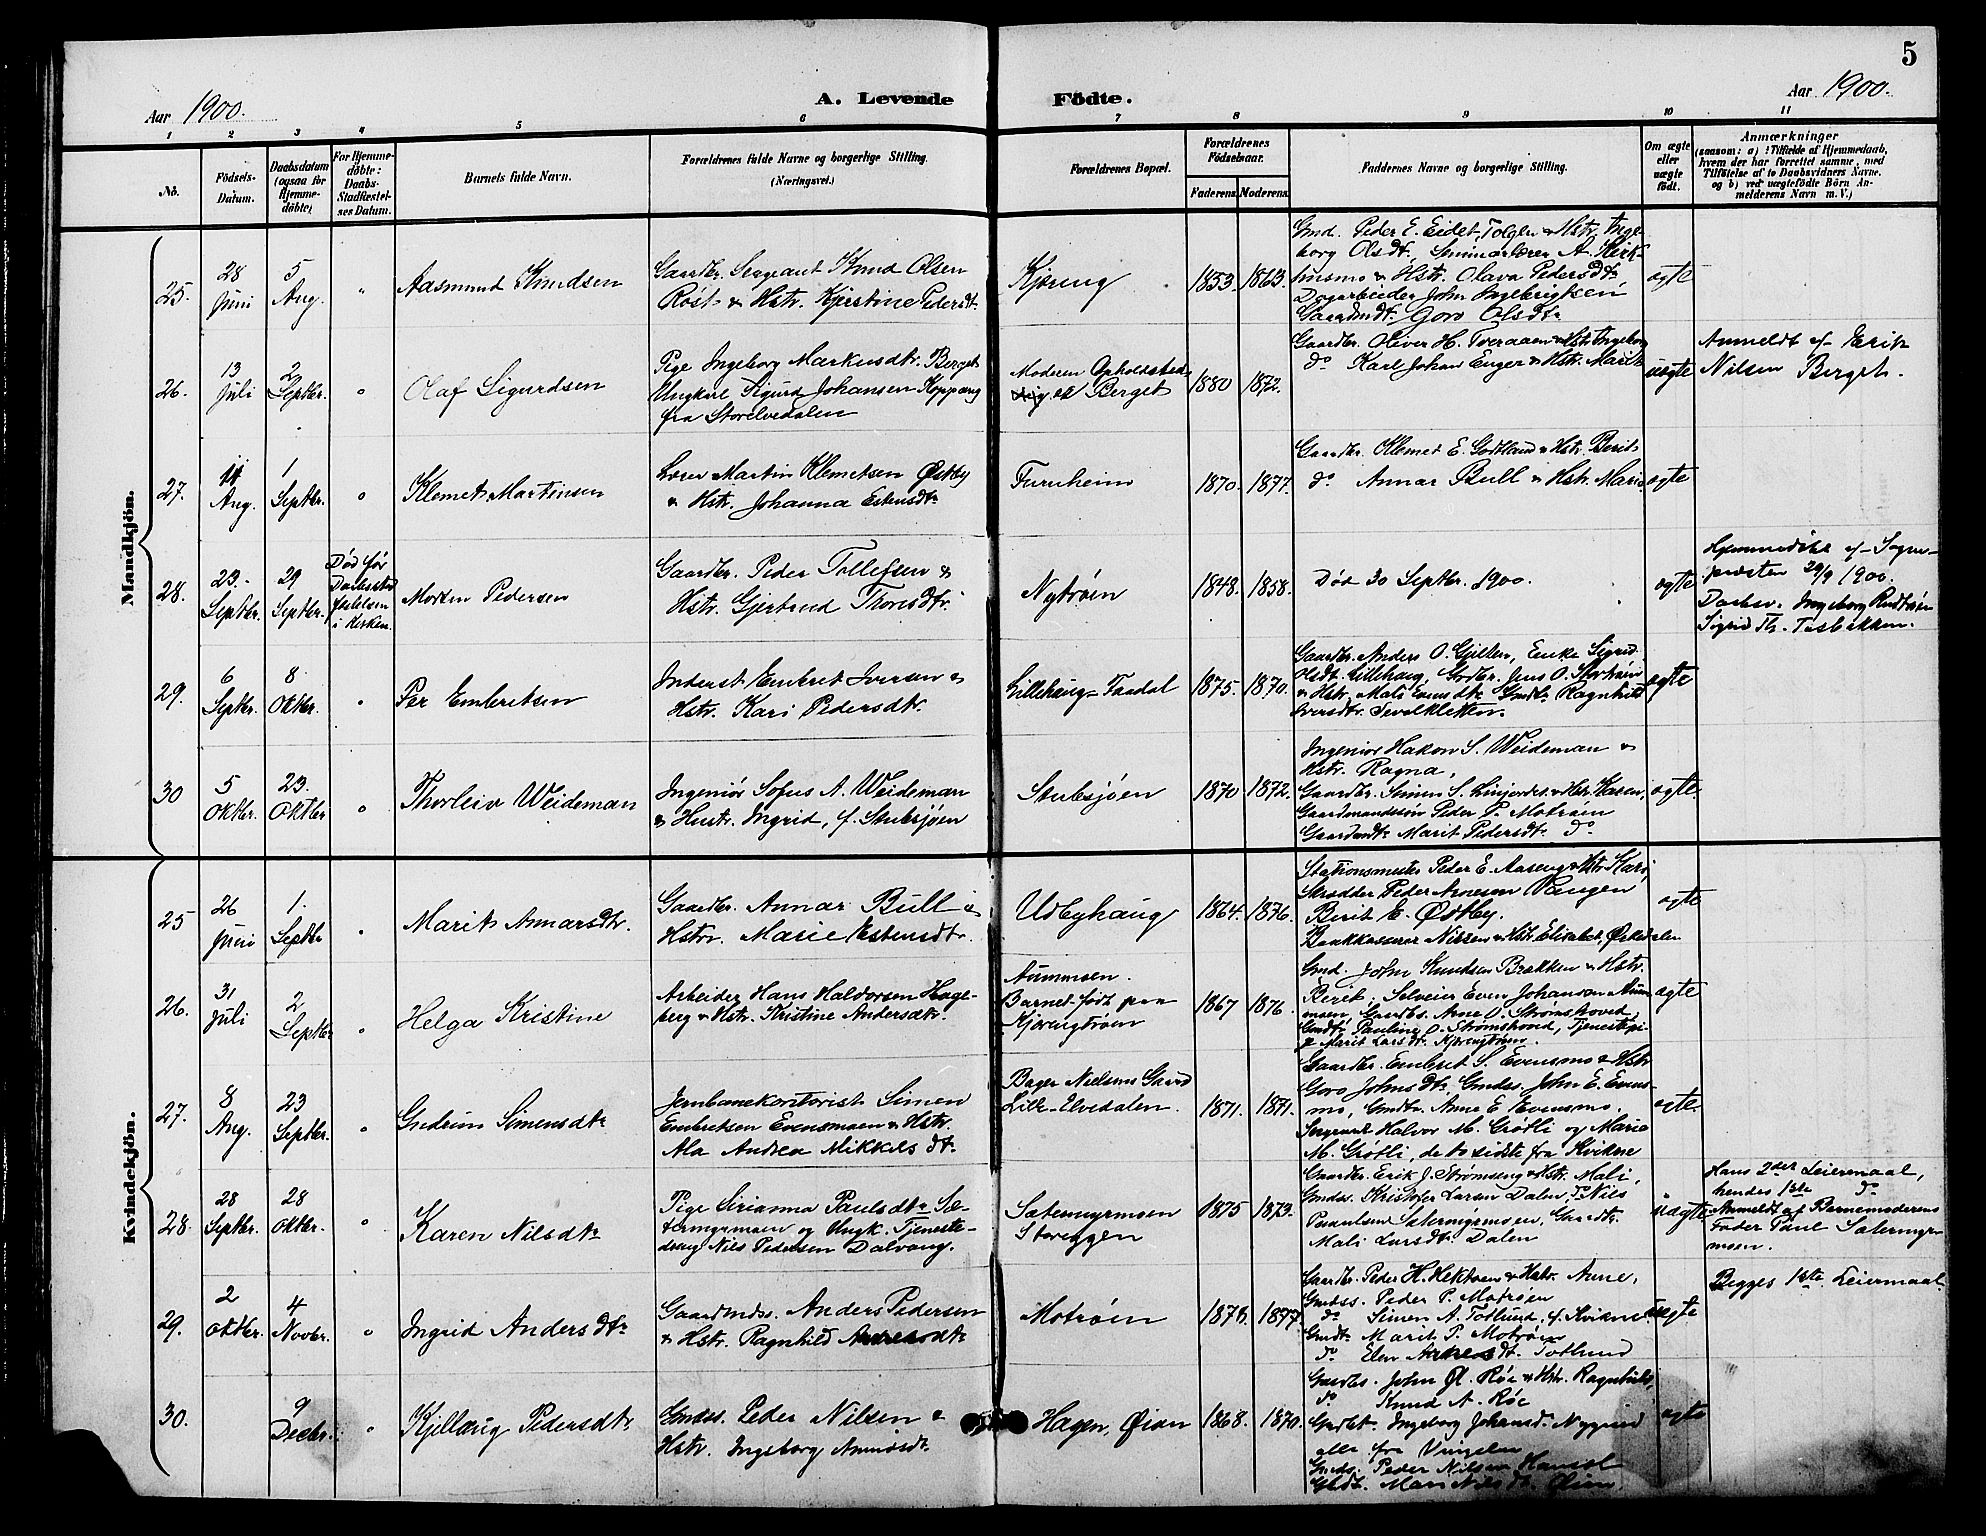 5
Aar 1900.
A. Levende Födte.
Aar 1900.
1 2 3 4 5 6 7 8 9 10 11
No.
Födsels-
Datum.
Daabsdatum
(ogsaa for
Hjemme-
döbte)
For Hjemme-
döbte:
Daabs-
Stadfæstel-
ses Datum.
Barnets fulde Navn.
Forældrenes fulde Navne og borgerlige Stilling.
(Næringsvei.)
Forældrenes Bopæl.
Forældrenes
Födselsaar.
Faderens. Moderens.
Faddernes Navne og borgerlige Stilling.
Om ægte
eller
uægte
födt.
Anmærkninger
(saasom: a) i Tilfælde af Hjemmedaab,
hvem der har forrettet samme, med
Tilföielse af to Daabsvidners Navne,
og b) ved uægtefödte Börn An-
melderens Navn m. V.)
Mandkjön.
25.
28
Juni
5
Aug.
"
Aasmund Knudsen
Gaardbr. Sergeant Knud Olsen
Röst & Hstr. Kjerstine Pedersdtr.
Kjöreng
1853. 1863.
Gmd. Peder E. Eidet, Tolgen & Hstr. Inge-
borg Olsdt., Seminarlærer A. Kirk-
husmo & Hstr. Olava Pedersdtr.
Dagarbeider John Ingebrigtsen
Gaardmdt. Goro Olsdtr
ægte
26.
13
Juli
2
Septbr.
"
Olaf Sigurdsen
Pige Ingeborg Markusdtr. Berget
Ungkarl Sigurd Johansen Koppang
fra Storelvedalen
Moderen Opholdsted
Berget
1880 1872.
Gaardbr. Oliver H. Tveraaen & Hstr. Ingeborg
do Karl Johan Enger & Hstr. Marit
uægte
Anmeldt af Erik
Nilsen Berget.
27.
11
Aug.
1
Septbr.
"
Klemet Martinsen
Lærer Martin Klemetsen Østby
& Hstr. Johanna Estensdtr
Furuheim
1870. 1877.
Gaardbr. Klemet E. Godtland & Hstr. Berit
do Annar Bull & Hstr. Marie
ægte
28.
23.
Septbr.
29
Septbr.
Död før
Daabsstad
fæstelsen
i Kirken.
Morten Pedersen
Gaardbr. Peder Tollefsen &
Hstr. Gjertrud Thoresdtr.
Nytröen
1848. 1858.
Död 30 Septbr. 1900.
ægte
Hjemmedöbt af Sogne-
præsten 29/9 1900.
Daabsv. Ingeborg Rudtröen
Sigrid Th. Tosbakken.
29.
6
Septbr.
8
Oktbr.
"
Per Embretsen
Inderst Embret Iversen &
Hstr. Kari Pedersdtr.
Lillehaug Faadal
1875. 1870.
Gaardbr. Anders O. Gjelten, Enke Sigrid
Olsdt. Lillehaug, Gardbr. Jens O. Stortröen
& Hstr. Mali Evensdtr. Gmdtr. Ragnhild
Iversdtr. Sevelkletten.
ægte
30
5
Oktbr.
23.
Oktbr
"
Thorleiv Weideman
Ingeniör Sofus A. Weideman
& Hustr. Ingrid, f. Stubsjöen
Stubsjöen
1870 1872.
Ingeniör Hakon S. Weideman &
Hstr. Ragna,
Gaardbr. Simen S. Linjordet & Hstr. Karen,
Gaardmandssön Peder P. Moträen
Gaardmdtr Marit Pedersdtr. do
ægte.
Kvindekjön.
25
26
Juni
1.
Septbr
"
Marit Annarsdtr.
Gaardbr. Annar Bull &
Hstr. Marie Estensdtr.
Udbyhaug
1864. 1876.
Stationsmester Peder E. Aaseng & Hstr. Kari,
Skrædder Peder Arnesen Vangen
Berit E. Østby.
Bankkasserer Nilsen & Hstr. Elisabet, Øskedalen
ægte
26.
31
Juli
2
Septbr
"
Helga Kristine
Arbeider Hans Haldorsen Hage-
berg & Hstr. Kristine Andersdtr.
Aummoen.
Barnet födt paa
Kjörengtröen
1867 1876.
Gmd. John Knudsen Brækken & Hstr.
Berit. Selveier Even Johansen Aum-
moen, Gaardbs. Arne O. Strömshoved,
Gmdtr. Pauline O. Strömshoved, Tjenestepi-
ge Marit Larsdtr. Kjörengtröen.
ægte
27.
8
Aug.
23
Septbr.
"
Gudrun Simensdtr
Jernbanekontorist Simen
Embretsen Evensmoen & Hstr.
Ala Andrea Mikkelsdtr.
Bager Nielsens Gaard
Lille-Elvedalen.
1871. 1871.
Gaardbr. Embret S. Evensmo & Hstr
Goro Johnsdtr. Gmdss. John E. Evens-
mo, Gmdtr. Anne E. Evensmo.
Sergeant Halvor M. Grötli og Marie
M. Grötli, de to sidste fra Kvikne
ægte.
28.
28
Septbr.
28
Oktbr.
"
Karen Nilsdtr
Pige Sirianna Paulsdtr Sæ-
termyrmoen og Ungk. Tjeneste-
dreng Nils Pedersen Dalvang.
Sætermyrmoen
Storeggen
1875 1873.
Gaardbr. Erik J. Strömseng & Hstr. Mali,
Gmdss. Kristofer Larsen Dalen, Nils
Paaulsen Sætermyrmoen, Gaardtr.
Mali Larsdtr. Dalen
uægte
Hans 2der Leiermaal,
hendes 1ste do
Anmeldt af Barnemoderens
Fader Paul Sætermyr-
moen.
29.
2
Oktbr.
4
Novbr.
"
Ingrid Andersdtr
Gaardmdss. Anders Pedersen
& Hstr. Ragnhild Andersdtr
Moträen
1876. 1877
Gaardbr. Peder H. Hektoen & Hstr. Anne,
Gmdss. Peder P. Moträen
do Simen A. Totlund, f. Kvikne
Gmdt. Marit P. Moträen
do Elen Arnesdt. Totlund
uægte
Begges 1ste Leiermaal
30.
9
Decbr.
"
Kjellaug Pedersdtr
Gmdss. Peder Nilsen &
Hstr. Ingeborg Amundsdtr.
Hagen, Øian
1868. 1870.
Gaardbs. John Ol. Röe & Hstr. Ragnhild,
do Knud A. Röe
Gmdtr. Ingeborg Johansdt. Nygaard
alle fra Vingelen
Gmds. Peder Nilsen Hansol
Gmdt. Mari Nilsdtr. Øien.
ægte